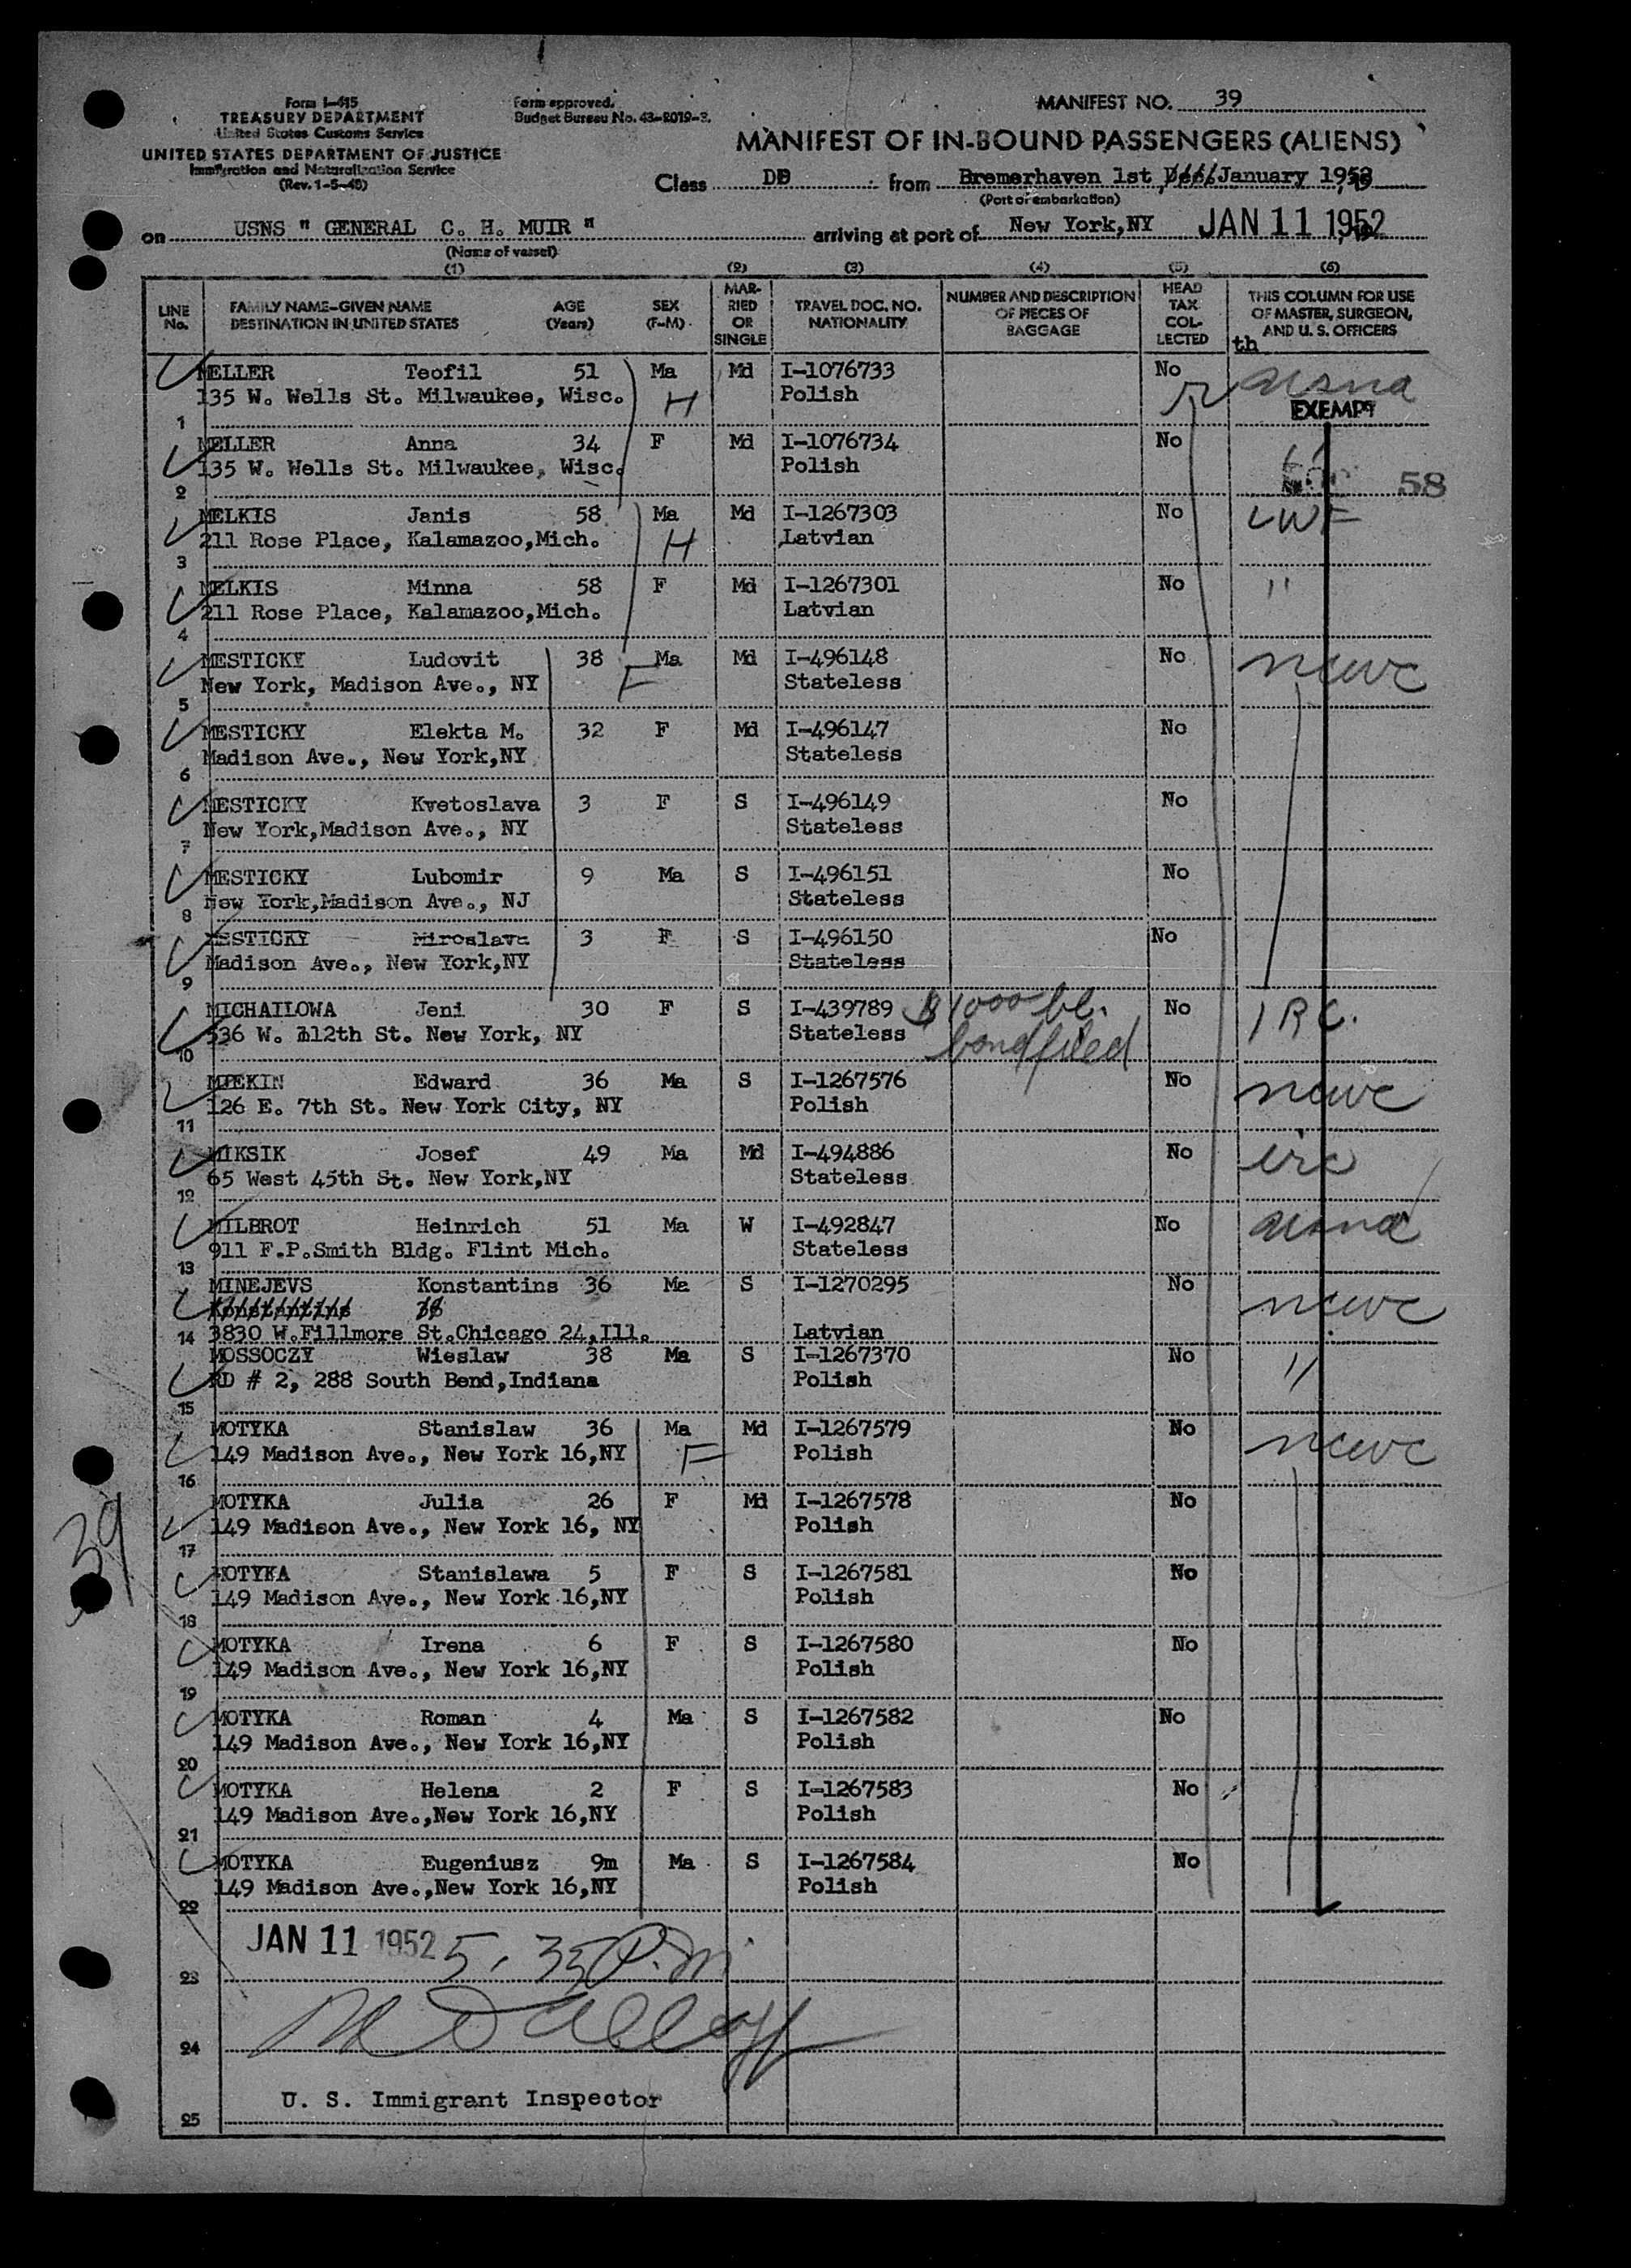 Form I-415
TREASURY DEPARTMENT
United States Customs Service
UNITED STATES DEPARTMENT OF JUSTICE
Immigration and Naturalization Service
(Rev. 1-5-48)
Form approved.
Budget Bureau No. 43-R019-3.
MANIFEST NO. 39
MANIFEST OF IN-BOUND PASSENGERS (ALIENS)
Class DP from Bremerhaven 1st January 1952
(Port of embarkation)
on USNS " GENERAL C. H. MUIR " arriving at port of New York,NY JAN 11 1952
(Name of vessel)
(1) (2) (3) (4) (5) (6)
LINE No. FAMILY NAME-GIVEN NAME DESTINATION IN UNITED STATES AGE (Years) SEX (F-M) MARRIED OR SINGLE TRAVEL DOC. NO. NATIONALITY NUMBER AND DESCRIPTION OF PIECES OF BAGGAGE HEAD TAX COLLECTED THIS COLUMN FOR USE OF MASTER, SURGEON, AND U. S. OFFICERS
th
MELLER Teofil 51 Ma Md I-1076733 No
135 W. Wells St. Milwaukee, Wisc. H Polish EXEMPT
1
MELLER Anna 34 F Md I-1076734 No
135 W. Wells St. Milwaukee, Wisc. Polish 58
2
MELKIS Janis 58 Ma Md I-1267303 No LWF
211 Rose Place, Kalamazoo,Mich. H Latvian
3
MELKIS Minna 58 F Md I-1267301 No "
211 Rose Place, Kalamazoo,Mich. Latvian
4
MESTICKY Ludovit 38 Ma Md I-496148 No ncwc
New York, Madison Ave., NY F Stateless
5
MESTICKY Elekta M. 32 F Md I-496147 No
Madison Ave., New York,NY Stateless
6
MESTICKY Kvetoslava 3 F S I-496149 No
New York,Madison Ave., NY Stateless
7
MESTICKY Lubomir 9 Ma S I-496151 No
New York,Madison Ave., NJ Stateless
8
MESTICKY Miroslava 3 F S I-496150 No
Madison Ave., New York,NY Stateless
9
MICHAILOWA Jeni 30 F S I-439789 $1000 bl. No IRC.
536 W. 112th St. New York, NY Stateless bond filed
10
MIEKIN Edward 36 Ma S I-1267576 No ncwc
126 E. 7th St. New York City, NY Polish
11
MIKSIK Josef 49 Ma Md I-494886 No irc
65 West 45th St. New York,NY Stateless
12
MILBROT Heinrich 51 Ma W I-492847 No
911 F.P.Smith Bldg. Flint Mich. Stateless
13
MINEJEVS Konstantins 36 Ma S I-1270295 No ncwc
14 3830 W.Fillmore St.Chicago 24,Ill. Latvian
MOSSOCZY Wieslaw 38 Ma S I-1267370 No "
RD # 2, 288 South Bend,Indiana Polish
15
MOTYKA Stanislaw 36 Ma Md I-1267579 No ncwc
149 Madison Ave., New York 16,NY F Polish
16
MOTYKA Julia 26 F Md I-1267578 No
149 Madison Ave., New York 16, NY Polish
17
MOTYKA Stanislawa 5 F S I-1267581 No
149 Madison Ave., New York 16,NY Polish
18
MOTYKA Irena 6 F S I-1267580 No
149 Madison Ave., New York 16,NY Polish
19
MOTYKA Roman 4 Ma S I-1267582 No
149 Madison Ave., New York 16,NY Polish
20
MOTYKA Helena 2 F S I-1267583 No
149 Madison Ave.,New York 16,NY Polish
21
MOTYKA Eugeniusz 9m Ma S I-1267584 No
149 Madison Ave.,New York 16,NY Polish
22
JAN 11 1952 5.35 P.m
23
24
U. S. Immigrant Inspector
25
39